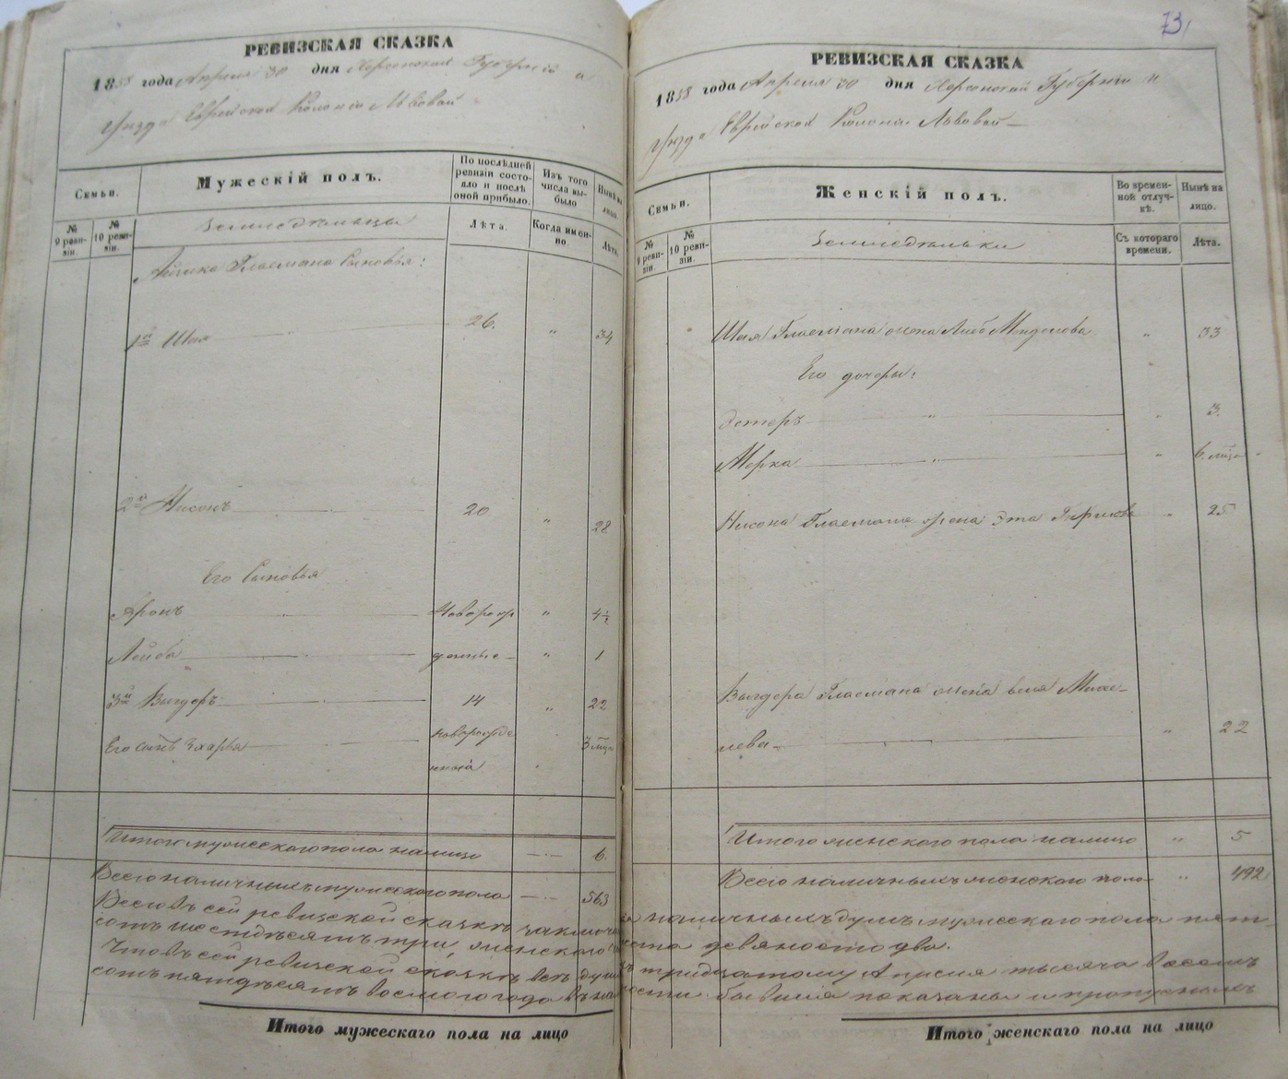 РЕВИЗСКАЯ СКАЗКА
1858 года Апреля 30 дня Херсонской Губерніи и
Уезда Еврейской Колоніи Львовой
Семьи.
№ 9 ревизіи.
№ 10 ревизіи.
Мужескій полъ.
По послѣдней ревизіи состояло и послѣ оной прибыло.
Изъ того числа выбыло
Нынѣ на лицо.
Лѣта.
Когда именно.
Лѣта.
Земледельцы
Глаемана сыновья:
1й Шая 26. " 34
2й Нисонъ 20 " 28
Его сыновья
Аронъ новорож " 4½
Лейба денные " 1
3й Вигдоръ 14 " 22
Его сынъ Захарья новорожде 3 мца
нный "
Итого мужескаго пола налицо 6.
Всего наличныхъ мужескаго пола 563
73
РЕВИЗСКАЯ СКАЗКА
1858 года Апреля 30 дня Херсонской Губерніи и
Уезда Еврейской Колоніи Львовой
Семьи.
№ 9 ревизіи.
№ 10 ревизіи.
Женскій полъ.
Во временной отлучкѣ.
Нынѣ на лицо.
Съ котораго времени.
Лѣта.
Земледельки
Шая Глаемана жена " 33
Его дочери:
Эстеръ " " 3
Мерка " " 6 мца
Нисона Глаемана жена Эта " 25
Вигдора Глаемана жена Бейля Михе-
лева " 22
Итого женскаго пола налицо " 5
Всего наличныхъ женскаго пола " 492
Всего въ сей ревизской сказкѣ заключа наличныхъ душъ мужескаго пола пять
сотъ шестдесятъ три, женскаго ста девяносто два.
Что въ сей ревизской сказкѣ все души къ тридцатому Апреля тысяча восемь
сотъ пятдесятъ восмого года въ на ности бывшія показаны и пропускныхъ
Итого мужескаго пола на лицо
Итого женскаго пола на лицо